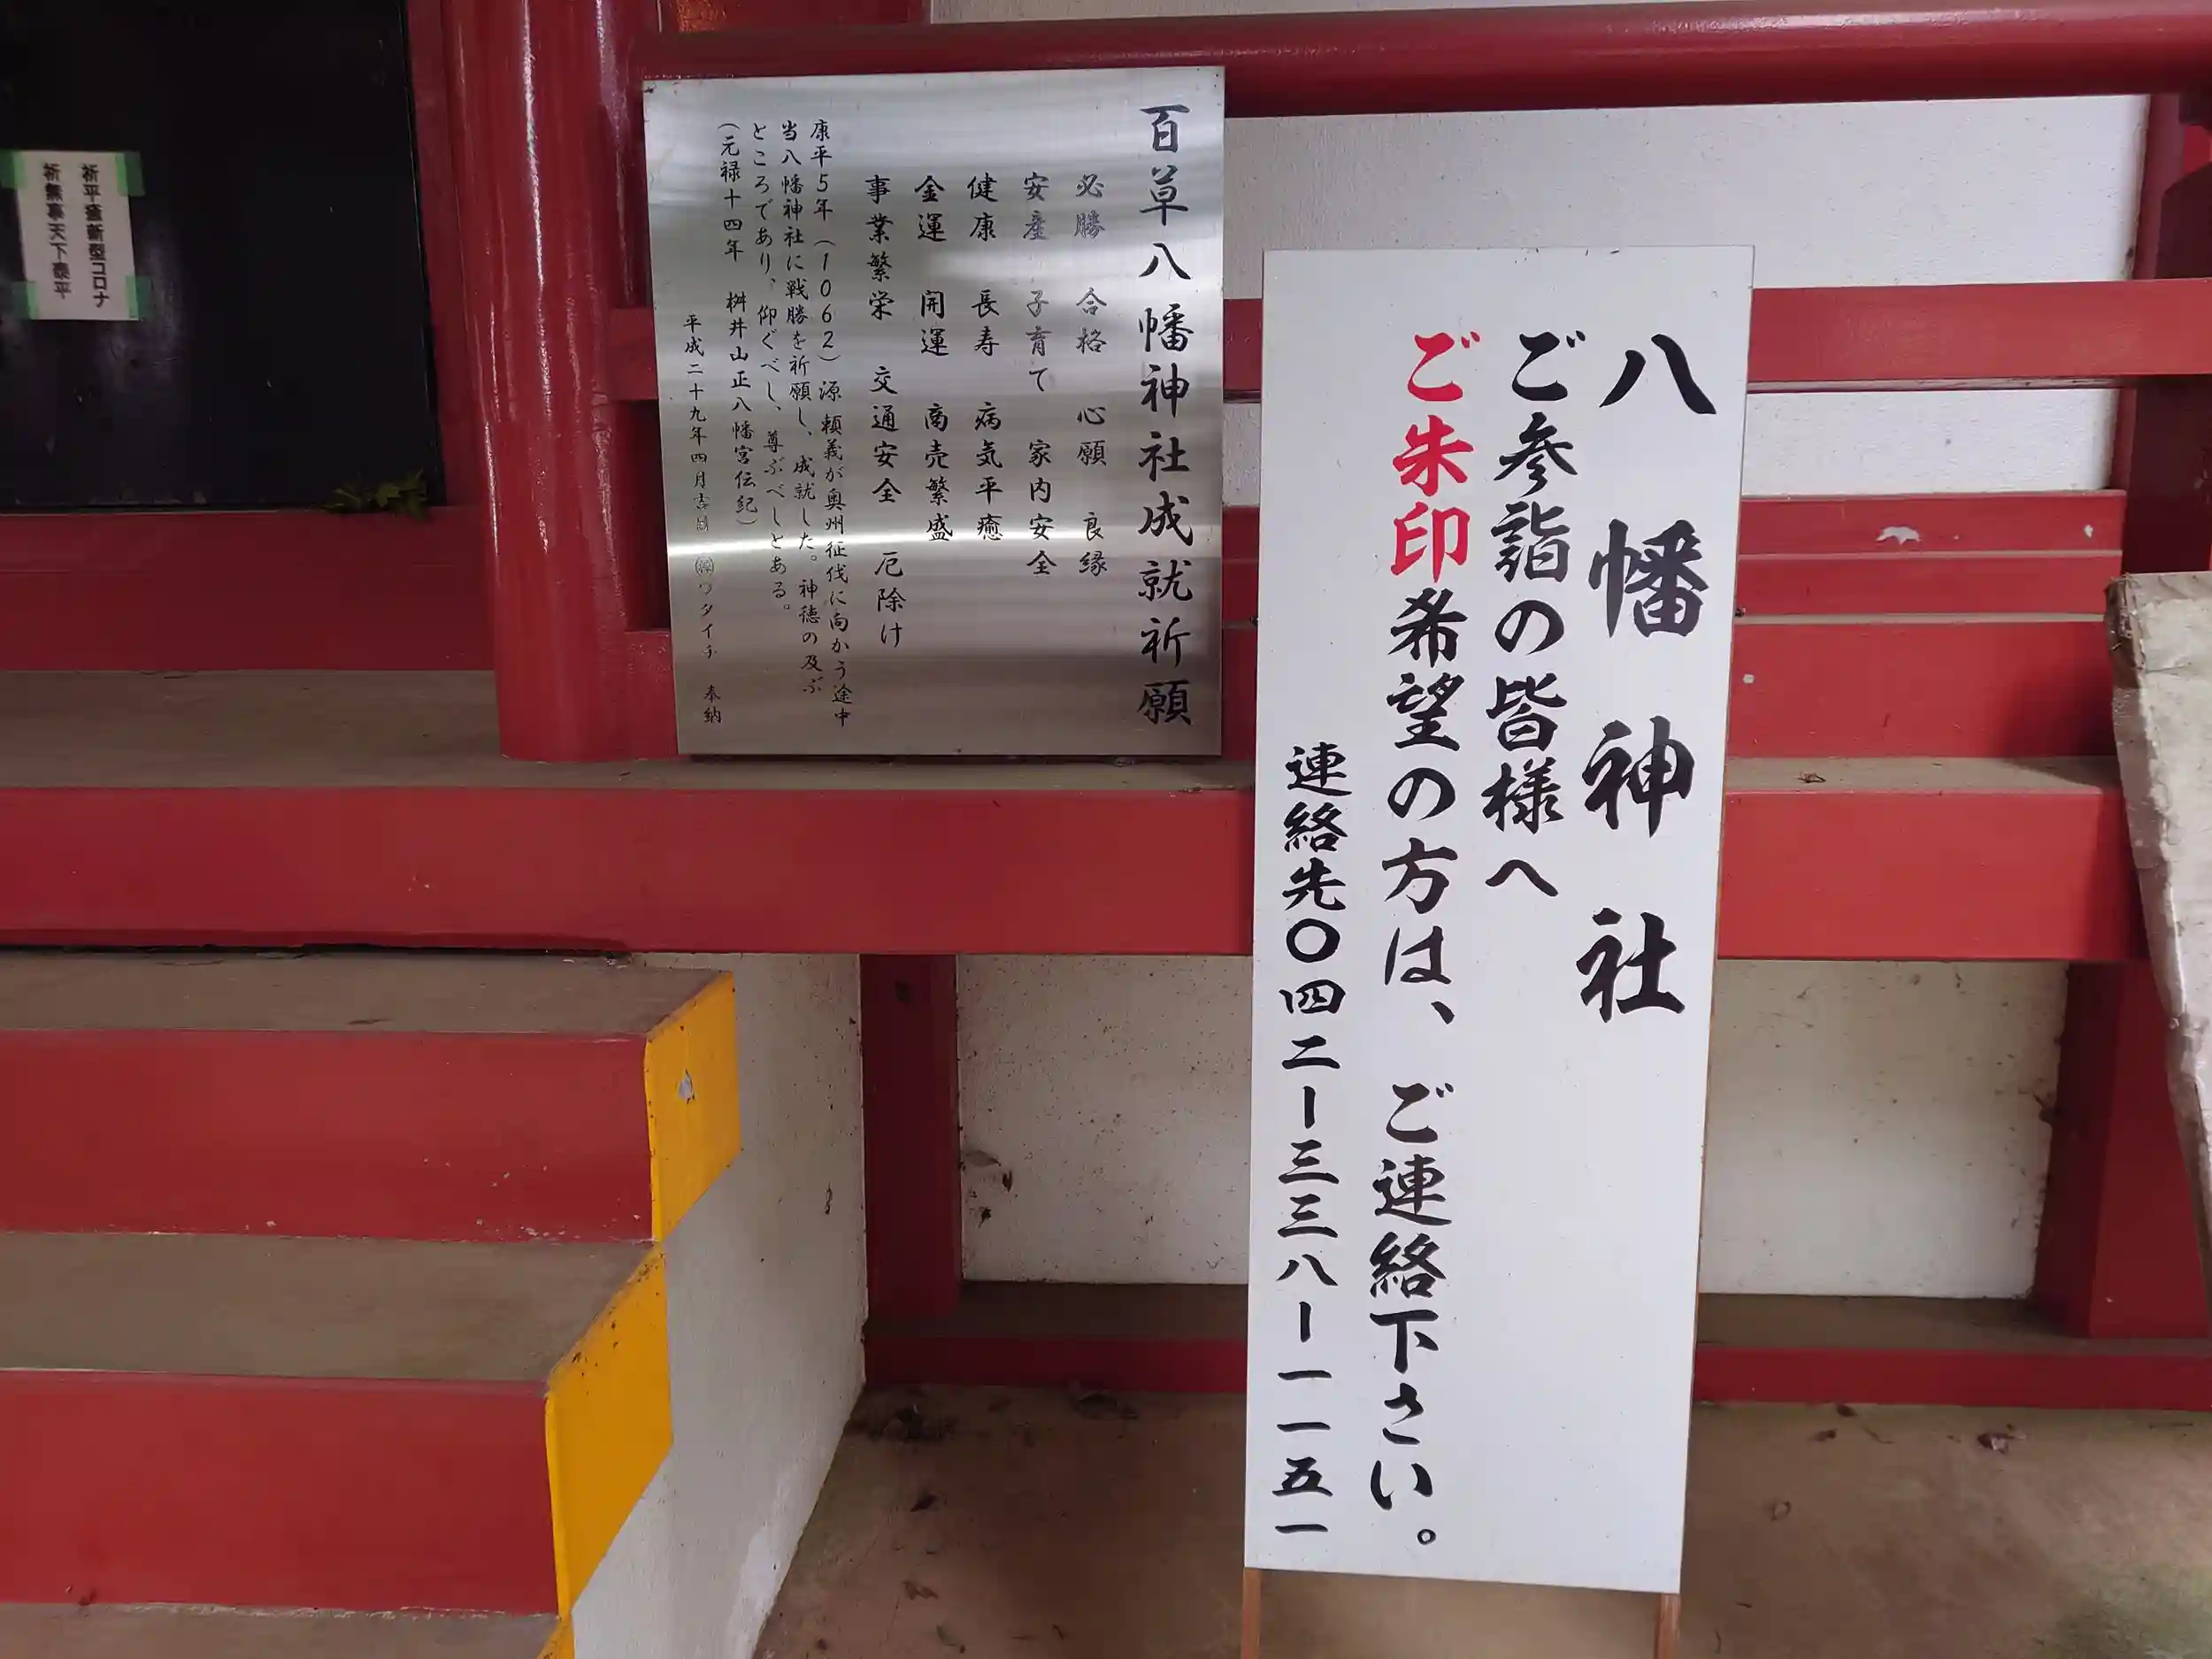 八幡神社
ご参詣の皆様へ
ご朱印希望の方は、ご連絡下さい。
連絡先〇四二ー三三八ー一一五一
百草八幡神社成就祈願
必勝 合格 心願 良縁
安産 子育て 家内安全
健康 長寿 病気平癒
金運 開運 商売繁盛
事業繁栄 交通安全 厄除け
康平5年(1062)源頼義が奥州征伐に向かう途中
当八幡神社に戦勝を祈願し、成就した。神徳の及ぶ
ところであり、仰ぐべし、尊ぶべしとある。
(元禄十四年 桝井山正八幡宮伝紀)
平成二十九年四月吉日 ㈱ワタイチ 奉納
祈平癒新型コロナ
祈無事天下泰平